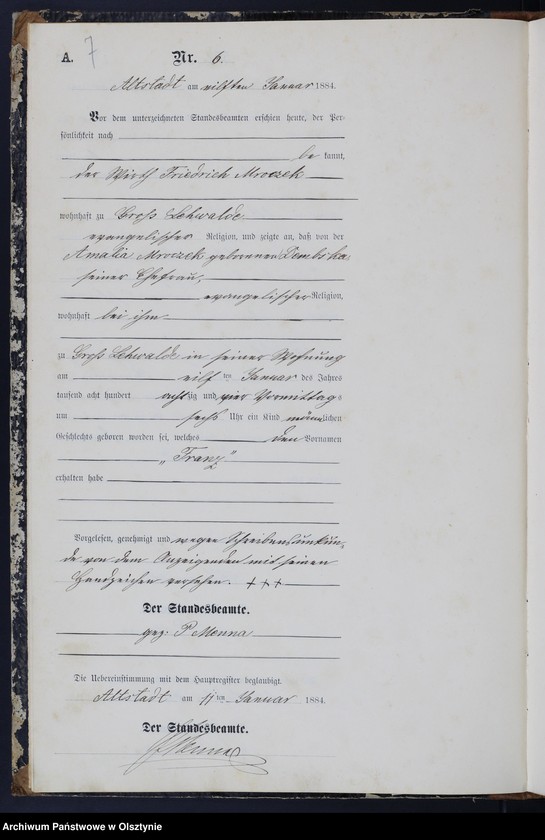 A. 7 Nr. 6.
Altstadt am eilften Januar 1884.
Vor dem unterzeichneten Standesbeamten erschien heute, der Per-
sönlichkeit nach
be kannt,
der Wirth Friedrich Mroczek
wohnhaft zu Groß Lehwalde
evangelischer Religion, und zeigte an, daß von der
Amalia Mroczek geborenen Dembska
seiner Ehefrau,
evangelischer Religion,
wohnhaft bei ihm
zu Groß Lehwalde in seiner Wohnung
am eilf ten Januar des Jahres
tausend acht hundert achtzig und vier Vormittags
um sechs Uhr ein Kind männlichen
Geschlechts geboren worden sei, welches den Vornamen
„Franz“
erhalten habe
Vorgelesen, genehmigt und wegen Schreibensunkun-
de von dem Anzeigenden mit seinen
Handzeichen versehen. +++
Der Standesbeamte.
gez. P Menna
Die Uebereinstimmung mit dem Hauptregister beglaubigt.
Altstadt am 11 ten Januar 1884.
Der Standesbeamte.
Menna
Archiwum Państwowe w Olsztynie